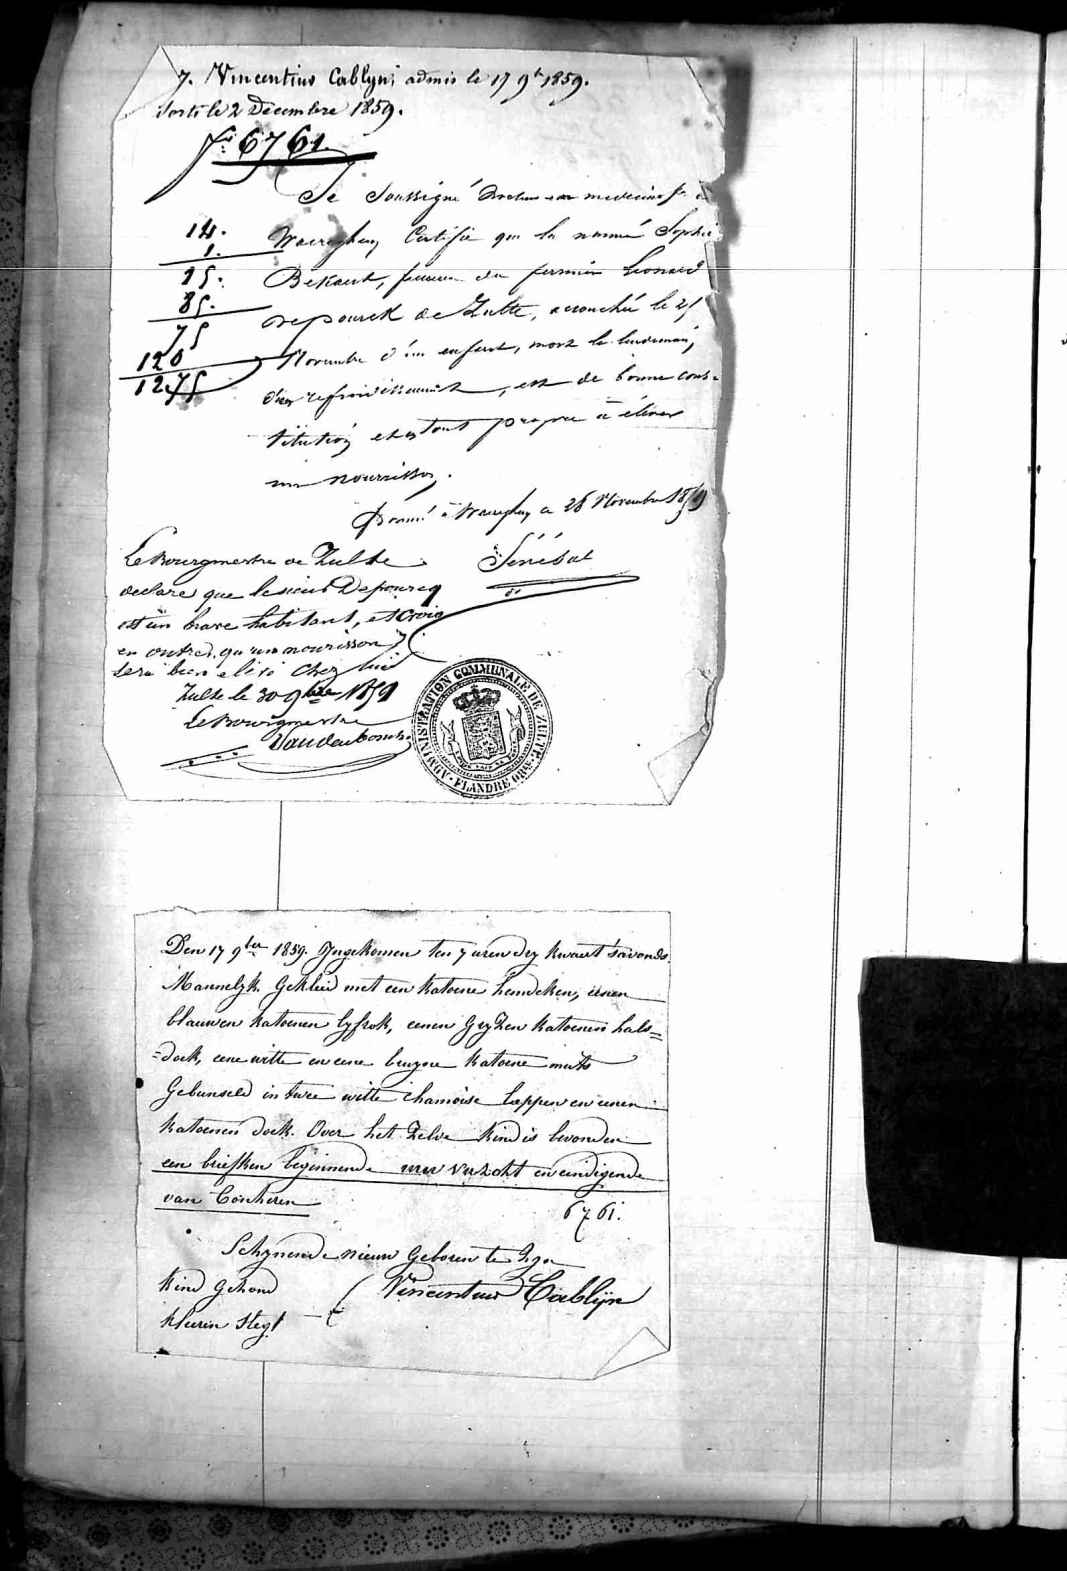 7. Vincentius Cablyn admis le 17 9bre 1859.
Sorti le 2 Décembre 1859.
No 6761
Je Soussigné Docteur en medecine à
Waereghem Certifie que la nommée Sophie
Bekaert, femme du fermier Leonard
Depourck de Zulte, accouchée le 25
Novembre d'un enfant, mort le lendemain,
de refroidissement, est de bonne cons-
titution et en tout propre à élever
un nourrisson.
Donné à Waereghem ce 28 Novembre 1859
Sénébat
14.
1.
15.
85.
75
120
1275
Le Bourgmestre de Zulte
declare que le sieur Depourcq
est un brave habitant, et croit
en outre, qu'un nourisson
sera bien elevé chez lui
Zulte le 30 9bre 1859
Le Bourgmestre
ADMINISTRATION COMMUNALE DE ZULTE
FLANDRE ORle
Den 17 9ber 1859. Ingekomen ten 7 uren dry kwaert s'avonds
Mannelyk Gekleed met een katoene hemdeken, eenen
blauwen katoenen lyfrok, eenen Gryzen katoenen hals=
=doek, eene witte en eene bruyne katoene muts
Gebunseld in twee witte chamoise lappen en eenen
katoenen doek. Over het Zelve kind is bevonden
een briefken beginnende verzoekt en eindigende
van
6761.
Schynende nieuw Geboren te Zyn
kind Gezond
Vincentius Cablijn
kleerin slegt